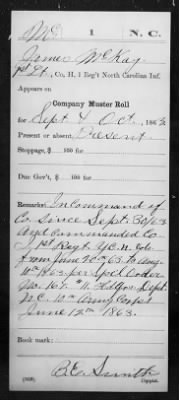 Mc 1 N.C.
James McKay
1st Lt., Co. H, 1 Reg't North Carolina Inf.
Appears on
Company Muster Roll
for Sept & Oct, 1863
Present or absent Present
Stoppage, $ 100 for
Due Gov't, $ 100 for
Remarks: In command of
Co since Sept. 30/63
And commanded Co
1st Regt N.C.
from June 20" 63 to Aug
10" 1863 per Spcl Order
No. 167 Hdqrs. Dept.
N.C. 10" Army Corps
June 12th 1863.
Book mark:
Smith
(358) Copyist.